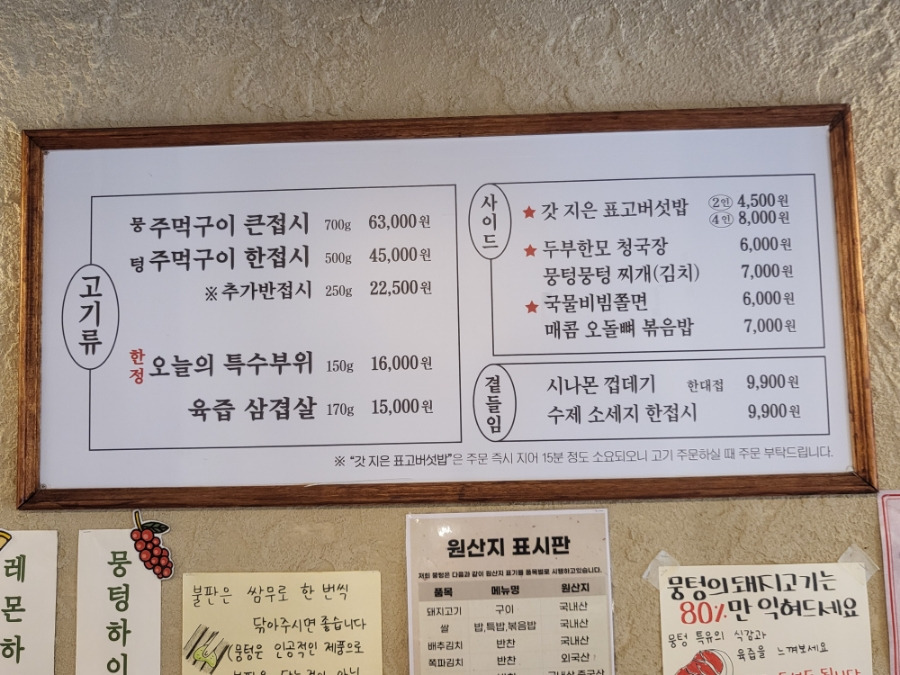 고기류
뭉 주먹구이 큰접시 700g 63,000원
텅 주먹구이 한접시 500g 45,000원
※추가반접시 250g 22,500원
한정 오늘의 특수부위 150g 16,000원
육즙 삼겹살 170g 15,000원
사이드
★ 갓 지은 표고버섯밥 2인 4,500원
4인 8,000원
★ 두부한모 청국장 6,000원
뭉텅뭉텅 찌개(김치) 7,000원
★ 국물비빔쫄면 6,000원
매콤 오돌뼈 볶음밥 7,000원
곁들임
시나몬 껍데기 한대접 9,900원
수제 소세지 한접시 9,900원
※ "갓 지은 표고버섯밥"은 주문 즉시 지어 15분 정도 소요되오니 고기 주문하실 때 주문 부탁드립니다.
레몬하
뭉텅하이
불판은 쌈무로 한 번씩
닦아주시면 좋습니다
(뭉텅은 인공적인 제품으로
원산지 표시판
저희 뭉텅은 다음과 같이 원산지 표기를 품목별로 시행하고있습니다.
품목 메뉴명 원산지
돼지고기 구이 국내산
쌀 밥,특밥,볶음밥 국내산
배추김치 반찬 국내산
쪽파김치 반찬 외국산
반찬
뭉텅의 돼지고기는
80%만 익혀드세요
뭉텅 특유의 식감과
육즙을 느껴보세요